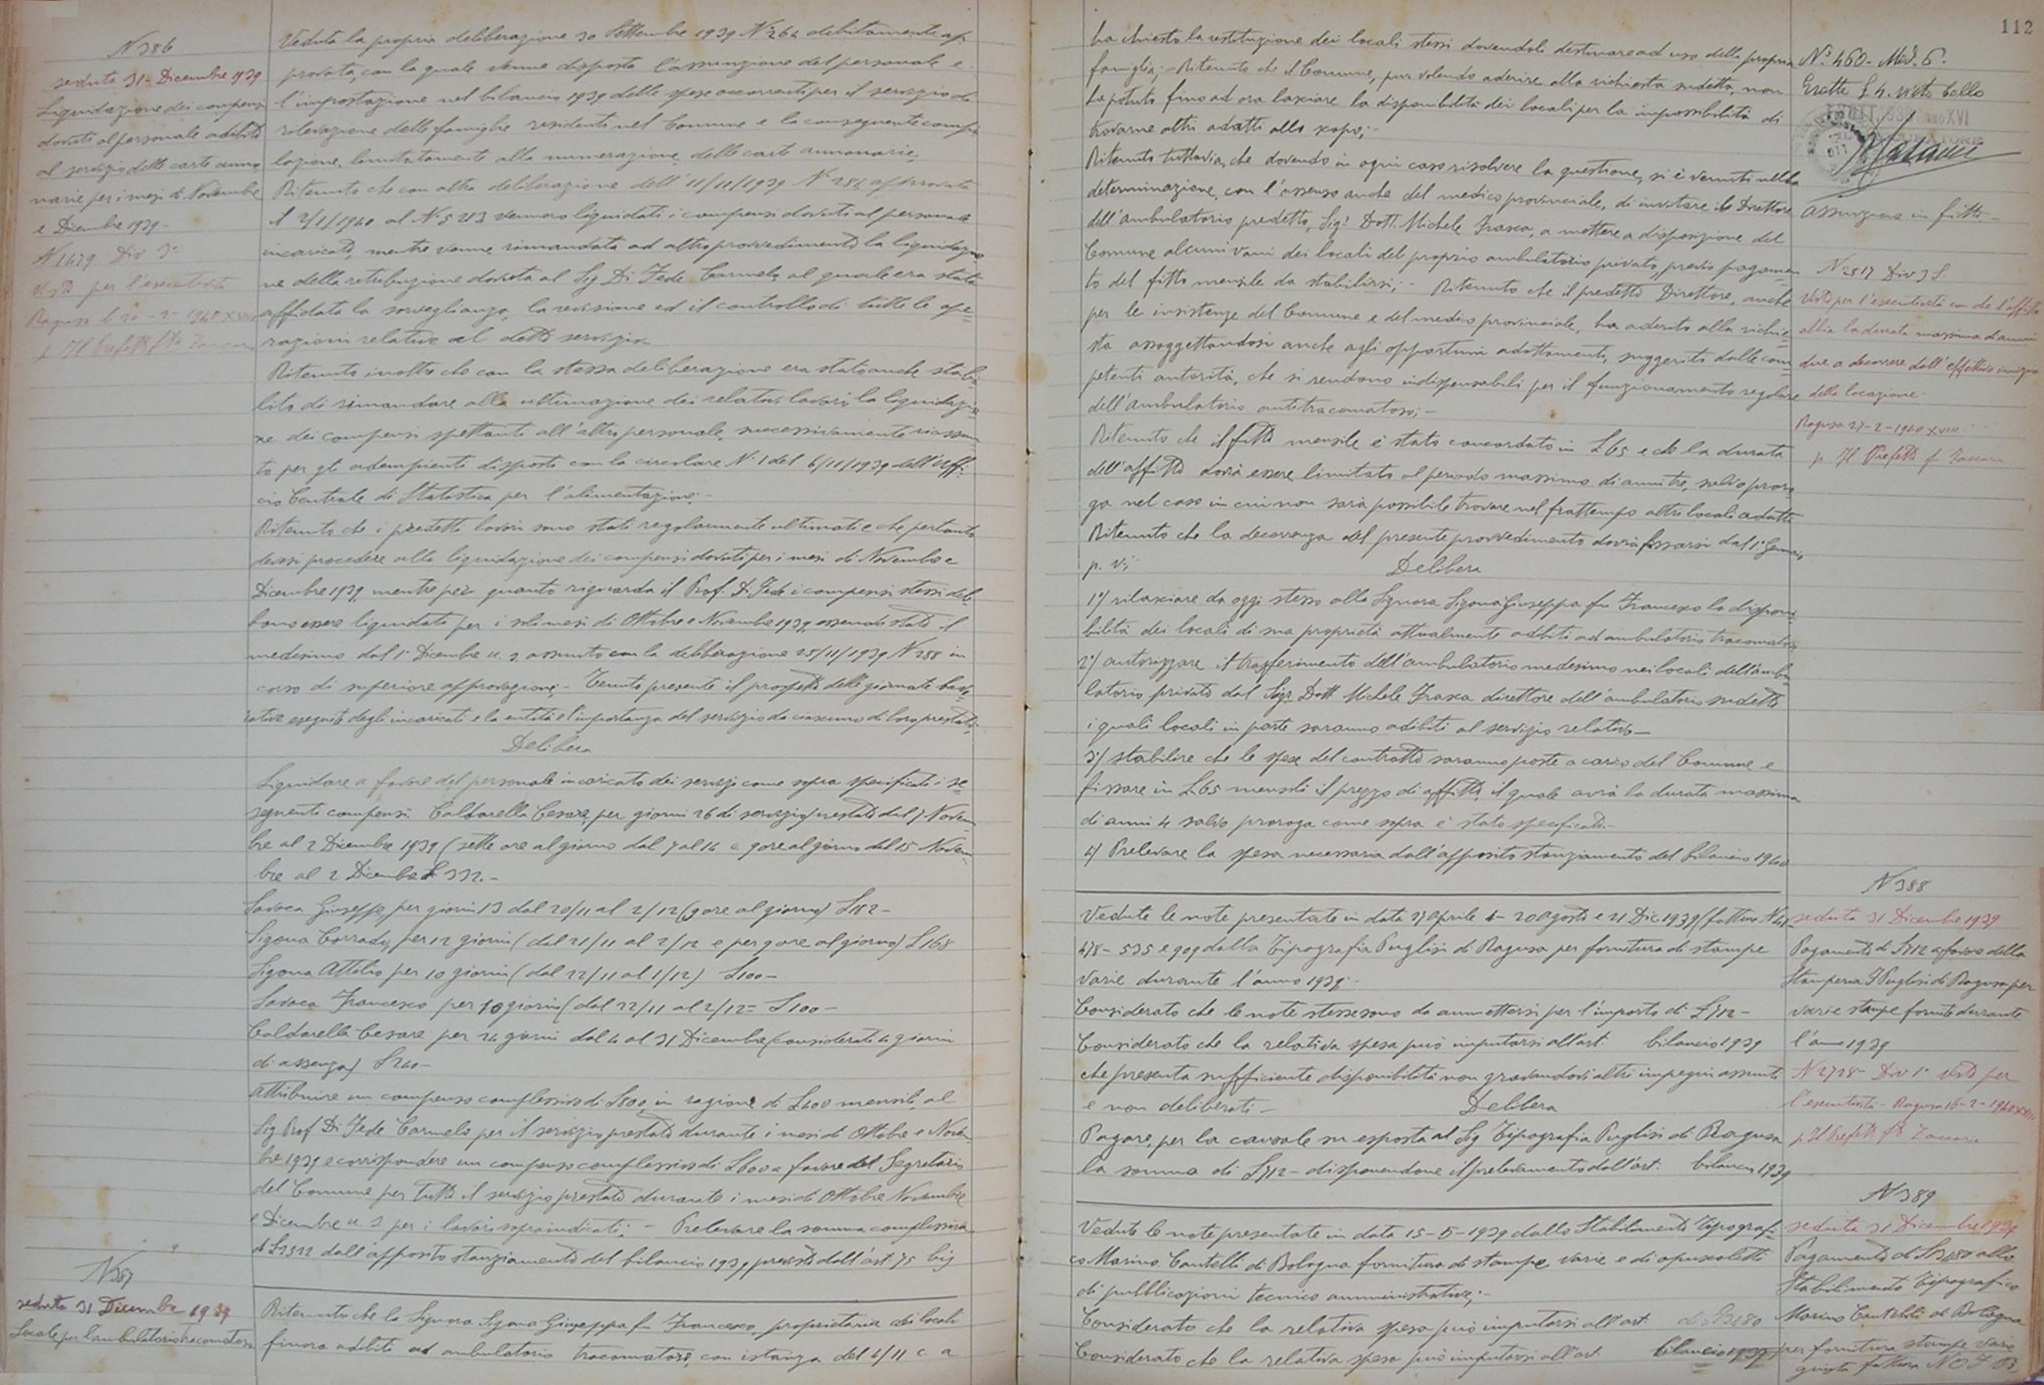 N 386
seduta 31 Dicembre 1939
Liquidazione dei compensi
dovuti al personale adibito
al servizio delle carte anno
narie per i mesi di Novembre
e Dicembre 1939 -
N 1429 Div 3ª
Visto per l'esecutività
Ragusa li 20-2-1940 XVIII
p. Il Prefetto
Veduta la propria deliberazione 30 Settembre 1939 N° 262 debitamente ap-
provata, con la quale venne disposta l'assunzione del personale e
l'impostazione nel bilancio 1939 delle spese occorrenti per il servizio di
rilevazione delle famiglie residenti nel Comune e la conseguente compi
lazione, limitatamente alla numerazione delle carte annonarie;
Ritenuto che con altra deliberazione dell'11/11/1939 N° 286 approvata
il 2/1/1940 al N. 5213 vennero liquidati i compensi dovuti al personale
incaricato, mentre venne rimandata ad altro provvedimento la liquidazio
ne della retribuzione dovuta al Sig Di Fede Carmelo al quale era stata
affidata la sorveglianza, la revisione ed il controllo di tutte le ope=
razioni relative al detto servizio -
Ritenuto inoltre che con la stessa deliberazione era stato anche stabi
lito di rimandare alla ultimazione dei relativi lavori la liquidazio
ne dei compensi spettanti all'altro personale, successivamente riassun
to per gli adempimenti disposti con la circolare N. 1 del 6/11/1939 dell'Uffi-
cio Centrale di Statistica per l'alimentazione: -
Ritenuto che i predetti lavori sono stati regolarmente ultimati e che pertanto
devesi procedere alla liquidazione dei compensi dovuti per i mesi di Novembre e
Dicembre 1939, mentre per quanto riguarda il Prof. Di Fede i compensi stessi deb
bono essere liquidati per i soli mesi di Ottobre e Novembre 1939, essendo stato il
medesimo dal 1° Dicembre u. s. assunto con la deliberazione 25/11/1939 N° 288 in
corso di superiore approvazione; - Tenuto presente il prospetto delle giornate lavo
rative eseguite dagli incaricati e la entità e l'importanza del servizio da ciascuno di loro prestato;
Delibera
Liquidare a favore del personale incaricato dei servizi come sopra specificati i se
seguenti compensi: Caldarella Cesare, per giorni 26 di servizio prestato dal 7 Novem
bre al 2 Dicembre 1939 (sette ore al giorno dal 7 al 14 e 9 ore al giorno dal 15 Novem
bre al 2 Dicembre £ 332. -
Savoca Giuseppe, per giorni 13 dal 20/11 al 2/12 (9 ore al giorno) £ 182 -
Sigona Corrado, per 12 giorni (dal 21/11 al 2/12 e per 9 ore al giorno) £ 168
Sigona Attilio per 10 giorni (dal 22/11 al 1/12) £ 100 -
Savoca Francesco per 10 giorni (dal 22/11 al 2/12 = £ 100 -
Caldarella Cesare per 24 giorni dal 4 al 31 Dicembre (considerati 4 giorni
di assenza) £ 240 -
Attribuire un compenso complessivo di £ 800, in ragione di £ 400 mensili, al
Sig Prof. Di Fede Carmelo per il servizio prestato durante i mesi di Ottobre e Novem
bre 1939 e corrispondere un compenso complessivo di £ 600 a favore del Segretario
del Comune per tutto il servizio prestato durante i mesi di Ottobre Novembre
e Dicembre u. s. per i lavori sopraindicati; - Prelevare la somma complessiva
di £ 2522 dall'apposito stanziamento del bilancio 1939, previsto dall'art. 75 bis
N 387
seduta 31 Dicembre 1939
Locale per l'ambulatorio tracomatoso
Ritenuto che la Signora Sigona Giuseppa fu Francesco, proprietaria dei locali
finora adibiti ad ambulatorio tracomatoso, con istanza del 4/11 c. a
112
ha chiesto la restituzione dei locali stessi dovendoli destinare ad uso della propria
famiglia; - Ritenuto che il Comune, pur volendo aderire alla richiesta suddetta, non
ha potuto fino ad ora lasciare la disponibilità dei locali per la impossibilità di
trovarne altri adatti allo scopo; -
Ritenuto tuttavia, che dovendo in ogni caso risolvere la questione, si è venuti nella
determinazione, con l'assenso anche del medico provinciale, di invitare il Direttore
dell'ambulatorio predetto, Sig. Dott. Michele Frasca, a mettere a disposizione del
Comune alcuni vani dei locali del proprio ambulatorio privato, previo pagamen
to del fitto mensile da stabilirsi; - Ritenuto che il predetto Direttore, anche
per le insistenze del Comune e del medico provinciale, ha aderito alla richie=
sta assoggettandosi anche agli opportuni adattamenti, suggeriti dalle com
petenti autorità, che si rendono indispensabili per il funzionamento regolare
dell'ambulatorio antitracomatoso; -
Ritenuto che il fitto mensile è stato concordato in £ 65 e che la durata
dell'affitto dovrà essere limitata al periodo massimo di anni tre, salvo proro
ga nel caso in cui non sarà possibile trovare nel frattempo altri locali adatti
Ritenuto che la decorrenza del presente provvedimento dovrà fissarsi dal 1° Gennaio
p. v;
Delibera
1°) rilasciare da oggi stesso alla Signora Sigona Giuseppa fu Francesco la disponi-
bilità dei locali di sua proprietà attualmente adibiti ad ambulatorio tracomatoso
2°) autorizzare il trasferimento dell'ambulatorio medesimo nei locali dell'ambu
latorio privato dal Sig. Dott. Michele Frasca direttore dell'ambulatorio suddetto
i quali locali in parte saranno adibiti al servizio relativo -
3°) stabilire che le spese del contratto saranno poste a carico del Comune e
fissare in £ 65 mensili il prezzo di affitto, il quale avrà la durata massima
di anni 4 salvo proroga come sopra è stato specificato. -
4) Prelevare la spesa necessaria dall'apposito stanziamento del bilancio 1940
N° 460 - Mod. 6.
Esatte £ 4. visto bollo
Assunzione in fitto -
N 2817 Div 3 S
Visto per l'esecutività con che l'affitto
abbia la durata massima d'anni
due a decorrere dall'effettivo inizio
della locazione
Ragusa 27-2-1940 XVIII
p. Il Prefetto
N 388
seduta 31 Dicembre 1939
Pagamento di £ 712 a favore della
Stamperia Puglisi di Ragusa per
varie stampe fornite durante
l'anno 1939
N 2728 - Div 1ª Visto per
l'esecutività - Ragusa 16-2-1940 XVIII
p. Il Prefetto
Vedute le note presentate in data 27 Aprile 4 - 20 Agosto e 21 Dic 1939 (fattura N.
478 - 535 e 909 dalla Tipografia Puglisi di Ragusa per fornitura di stampe
varie durante l'anno 1939; -
Considerato che le note stesse sono da ammettersi per l'importo di £ 712 -
Considerato che la relativa spesa può imputarsi all'art. bilancio 1939
che presenta sufficiente disponibilità non gravandovi altri impegni assunti
e non deliberati -
Delibera
Pagare, per la causale su esposta al Sig Tipografia Puglisi di Ragusa
la somma di £ 712 - disponendone il prelevamento dall'art. bilancio 1939
N 389
seduta 31 Dicembre 1939
Pagamento di allo
Stabilimento Tipografico
Marino Cantelli di Bologna
per fornitura stampe varie
giusta fattura
Vedute le note presentate in data 15-5-1939 dallo Stabilimento Tipografi-
co Marino Cantelli di Bologna fornitura di stampe varie e di opuscoletti
di pubblicazioni tecnico amministrative; -
Considerato che la relativa spesa può imputarsi all'art
Considerato che la relativa spesa può imputarsi all'art. bilancio 1939